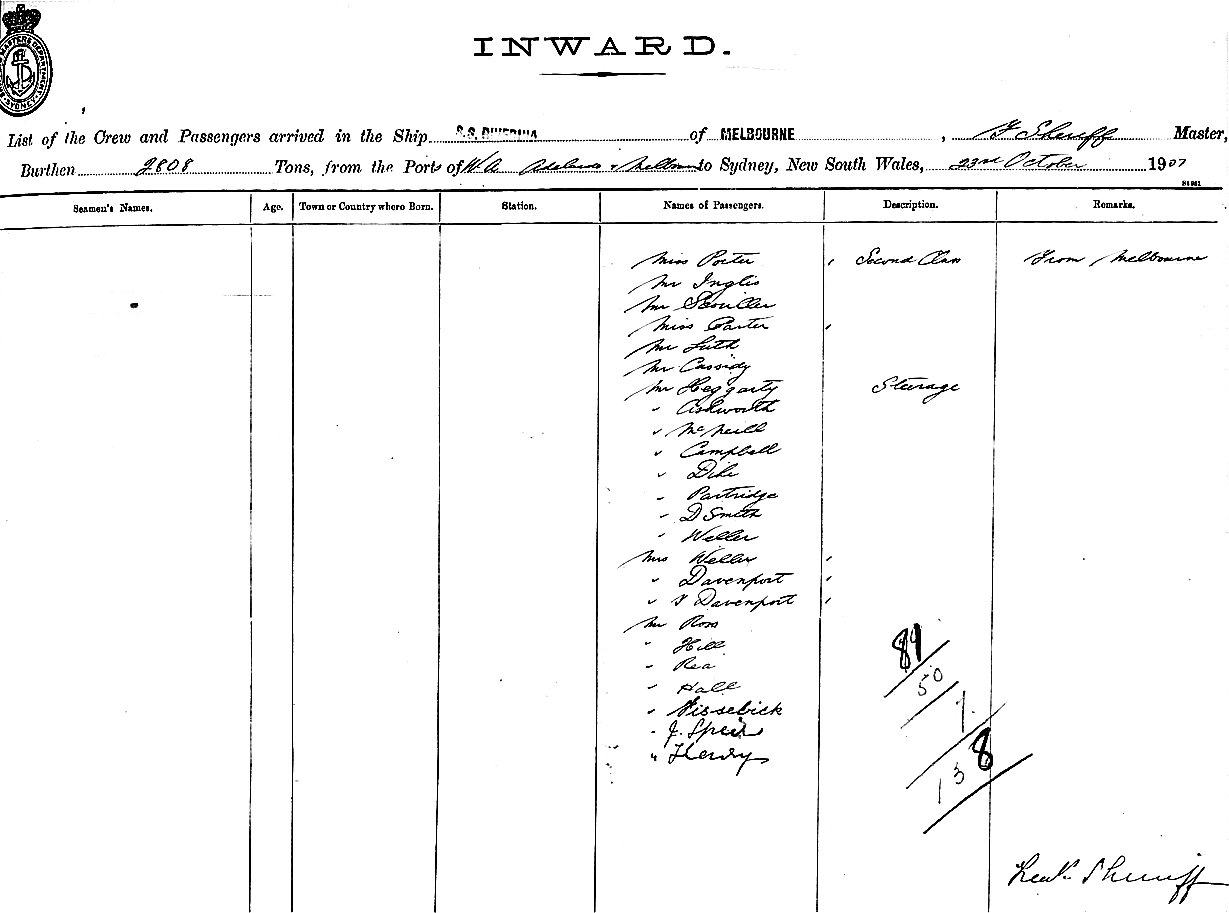 INWARD.
List of the Crew and Passengers arrived in the Ship S.S. of MELBOURNE, F Sheriff Master,
Burthen 2808 Tons, from the Ports of W.A. Adelaide & Melbourne to Sydney, New South Wales, 23rd October 1907
Seamen's Names. Age. Town or Country where Born. Station. Names of Passengers. Description. Remarks.
Miss Porter Second Class From Melbourne
Mr Inglis
Mr
Miss Carter
Mr Luth
Mr Cassidy
Mr Heggarty Steerage
" Ashworth
" McNeill
" Campbell
" Dike
" Partridge
" D Smith
" Weller
Mrs Weller
" Davenport
" Davenport
Mr Ross
" Hill
" Rea
" Hall
"
" J. Speirs
" Henry
50
138
Sheriff